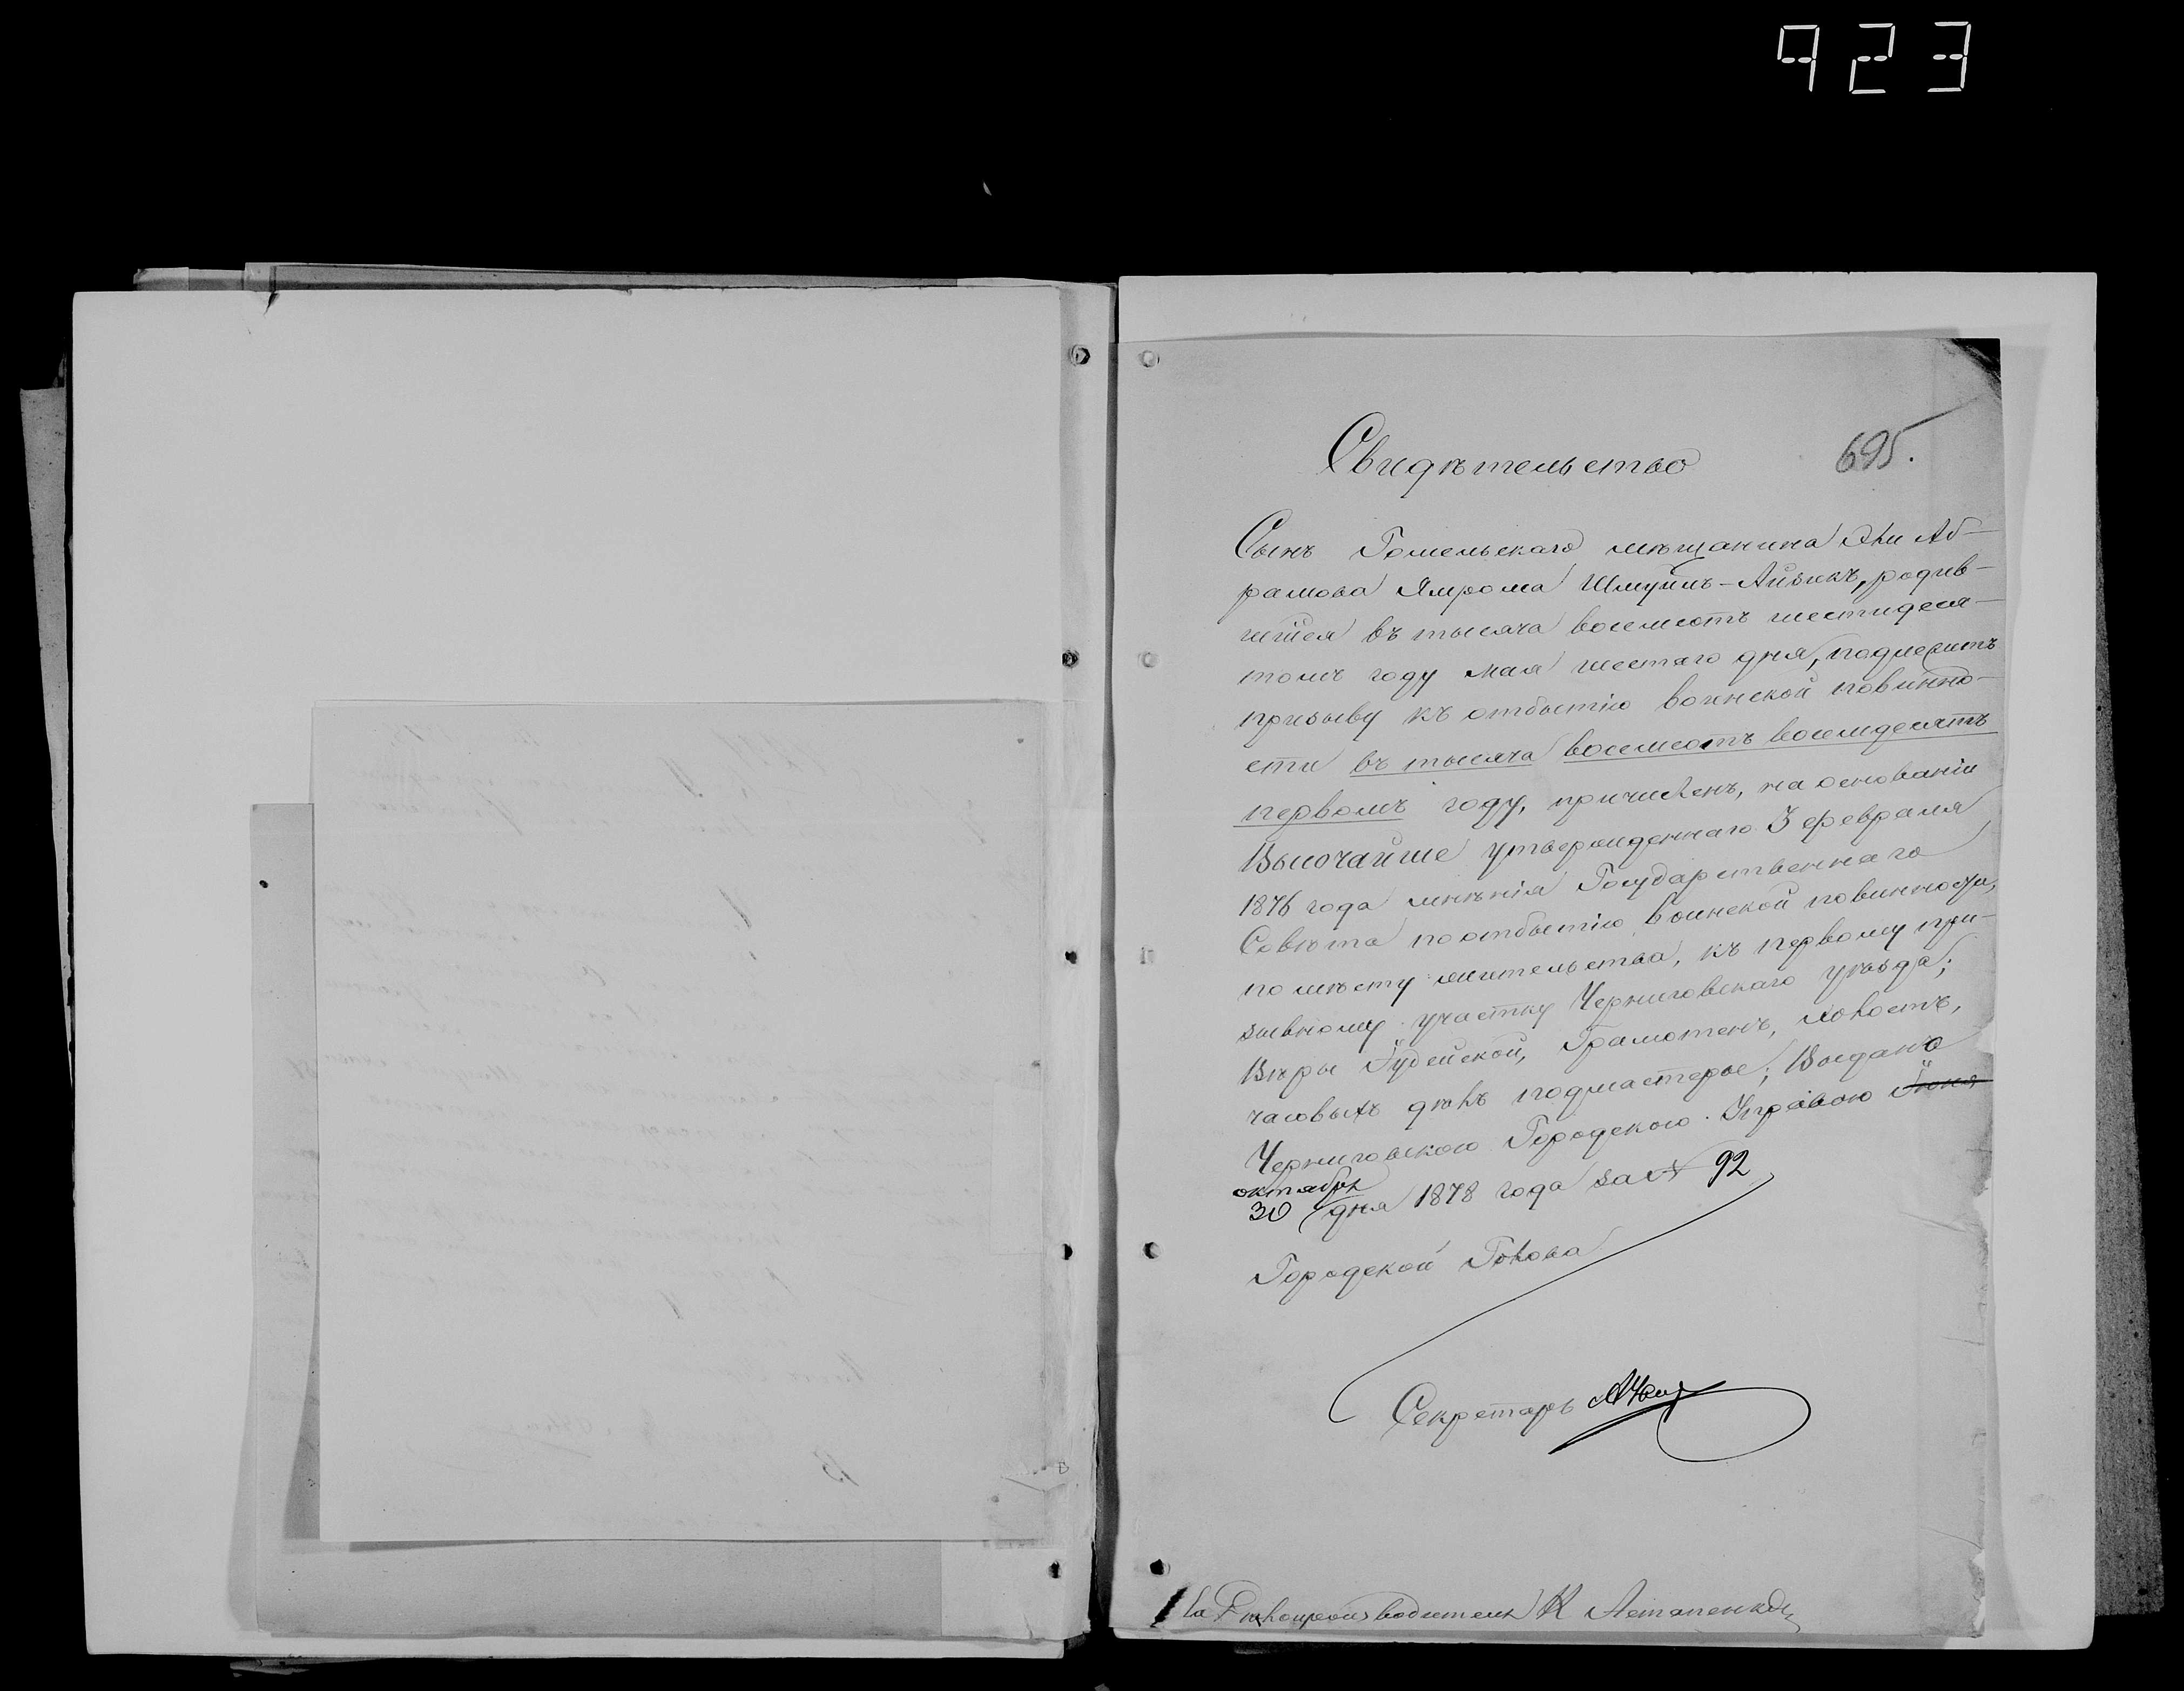 923
695.
Свидѣтельство
Сынъ Гомельскаго мѣщанина Эли Аб-
рамова Ямрома Шмуилъ-Айзикъ, родив-
шійся въ тысяча восемсотъ шестидеся-
томъ году мая шестаго дня, подлежитъ
призыву къ отбытію воинской повинно-
сти въ тысяча восемсотъ восемдесятъ
первомъ году, причисленъ, на основаніи
Высочайше утвержденнаго 3 февраля
1876 года мнѣнія Государственнаго
Совѣта по отбытію воинской повинности,
по мѣсту жительства, къ первому при-
зывному участку Черниговскаго уѣзда;
Вѣры Іудейской, Грамотенъ, холостъ,
часовыхъ дѣлъ подмастерье; Выдано
Черниговскою Городскою Управою Іюня
октября
30 дня 1878 года за № 92
Городской Голова
Секретарь
За Дѣлопроизводителя К Астапенко